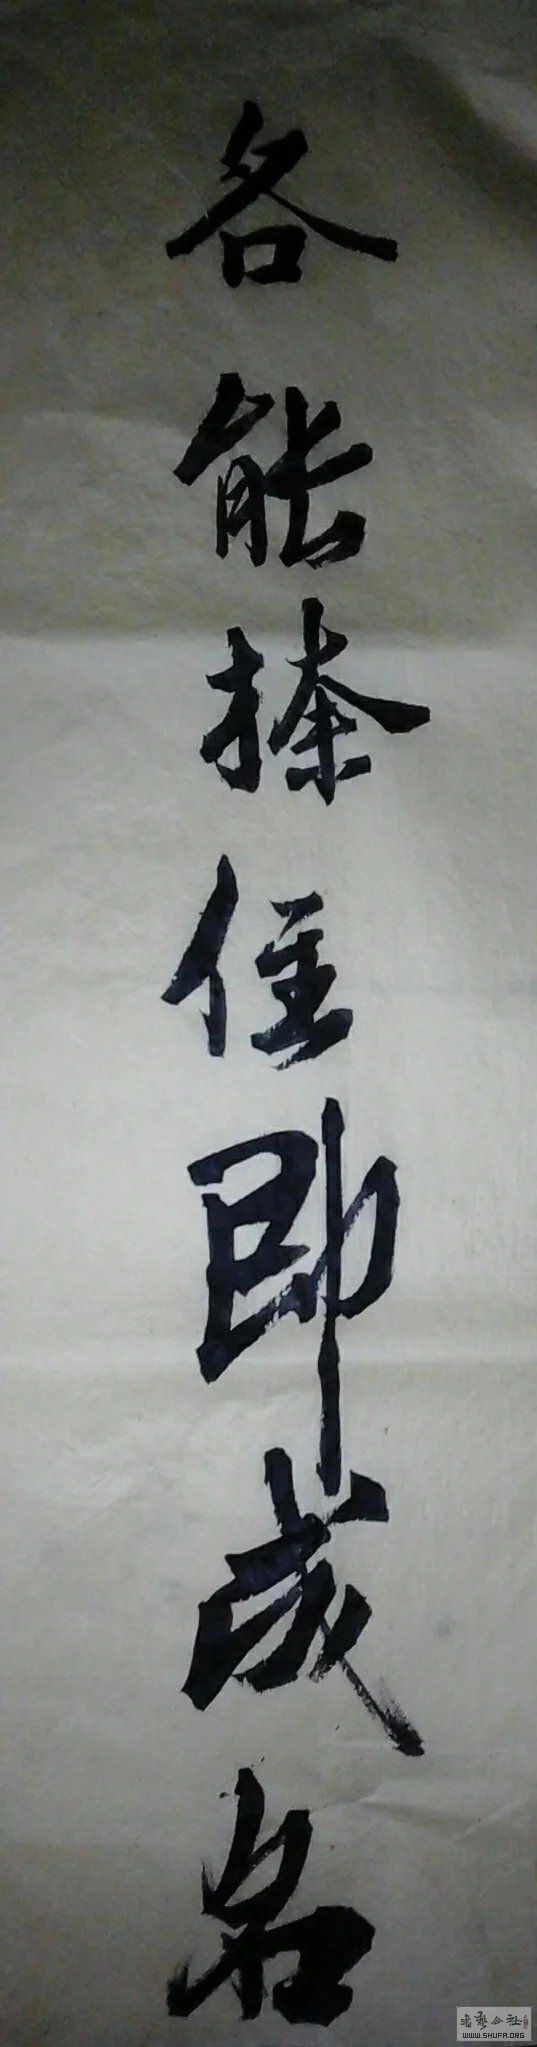 各能捧住即成名
书艺公社
WWW.SHUFA.ORG